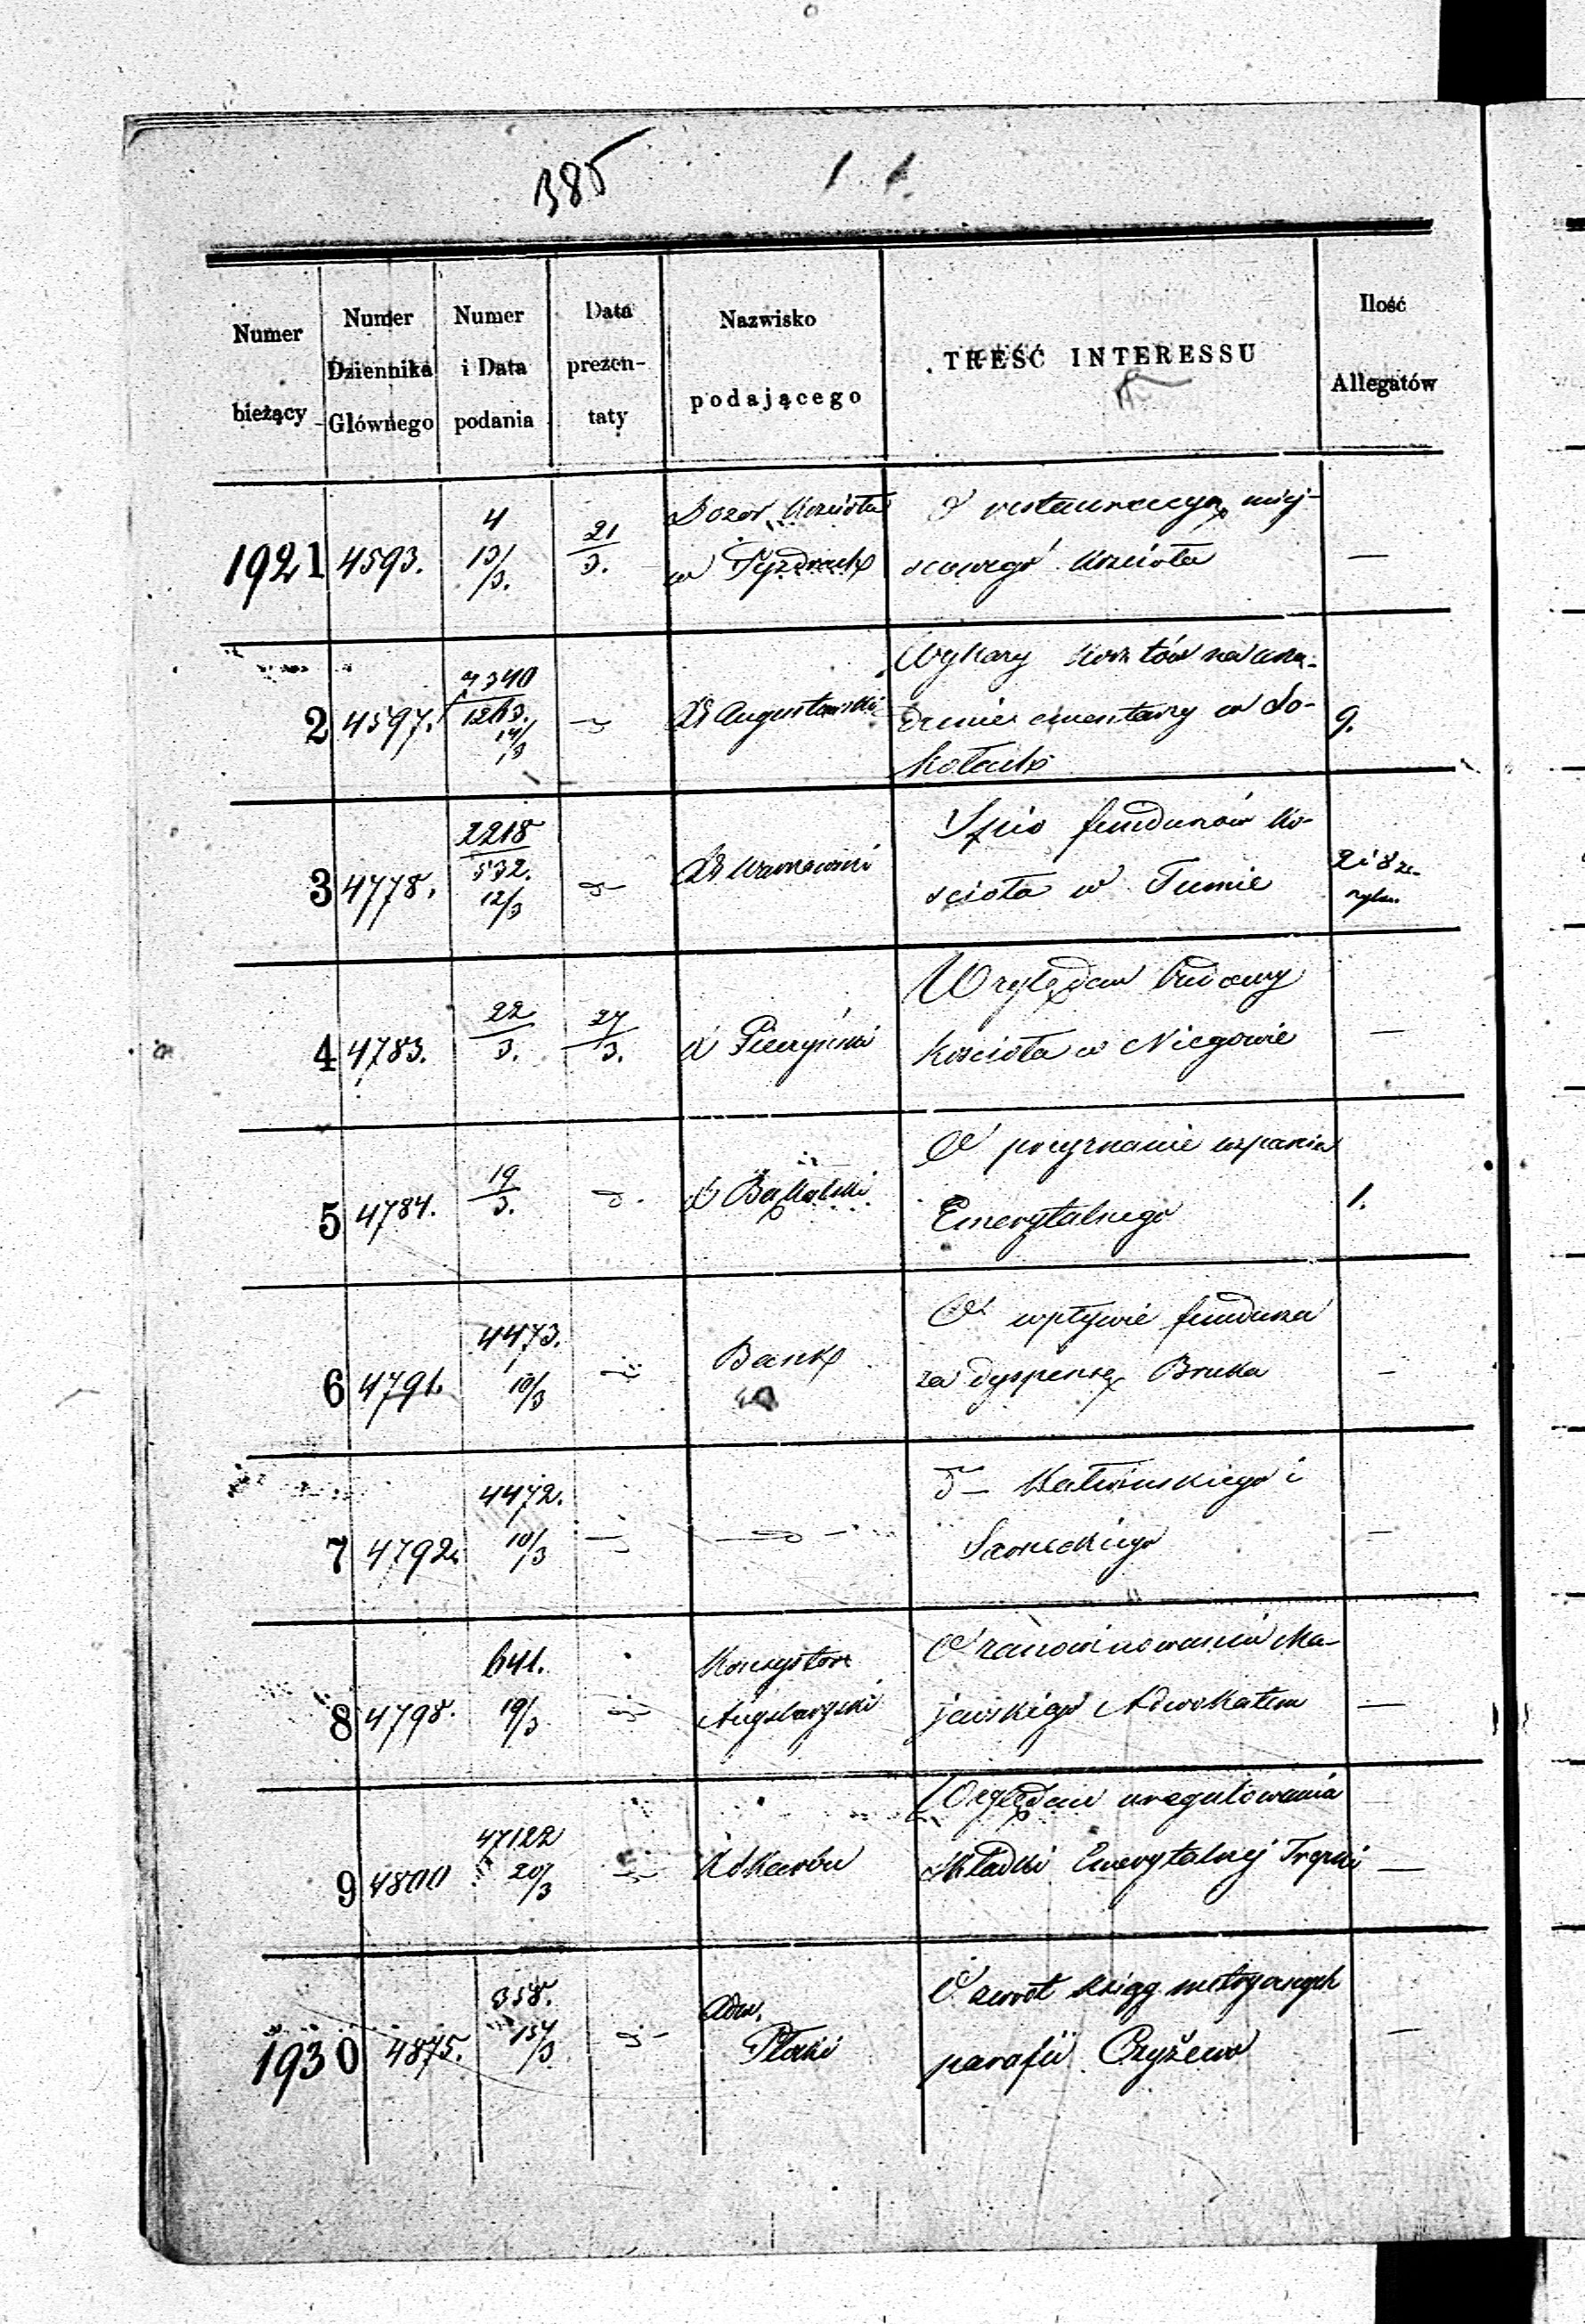 385
Numer bieżący
Numer Dziennika Głównego
Numer i Data podania
Data prezen-taty
Nazwisko podającego
TREŚĆ INTERESSU
Ilość Allegatów
1921 4593. 4 13/3. 21/3. Dozor Kościoła O restauracyą miej- —
w scowego Kościoła
2 4597. 7340/1263. 14/3 Augustowski Wykazy kosztów na urzą- 9.
dzenie cmentarzy w So-
kołach
3 4778. 2218/532. 12/3 d- Warszawski Spis funduszów Ko- 2 i 8
ścioła w Tumie
4 4783. 22/3. 27/3. X Względem budowy —
Kościoła w Niegowie
5 4784. 19/3. d. X Bąkalski O przyznanie wsparcia 1.
Emerytalnego
6 4791. 4473. 10/3 Bank O wpływie fundusza -
za dyspensę Bruka
7 4792. 4472. 10/3 d- i —
8 4798. 641. 19/3 Konsystorz O zamianowaniu Ma- —
Augsburgski jewskiego Adwokatem
9 4800 47122 20/3 Względem uregulowania —
składki Emerytalnej
1930 4875. 358. 15/3 d- Adw. O zwrot ksiąg metrycznych —
parafii Czyżewo